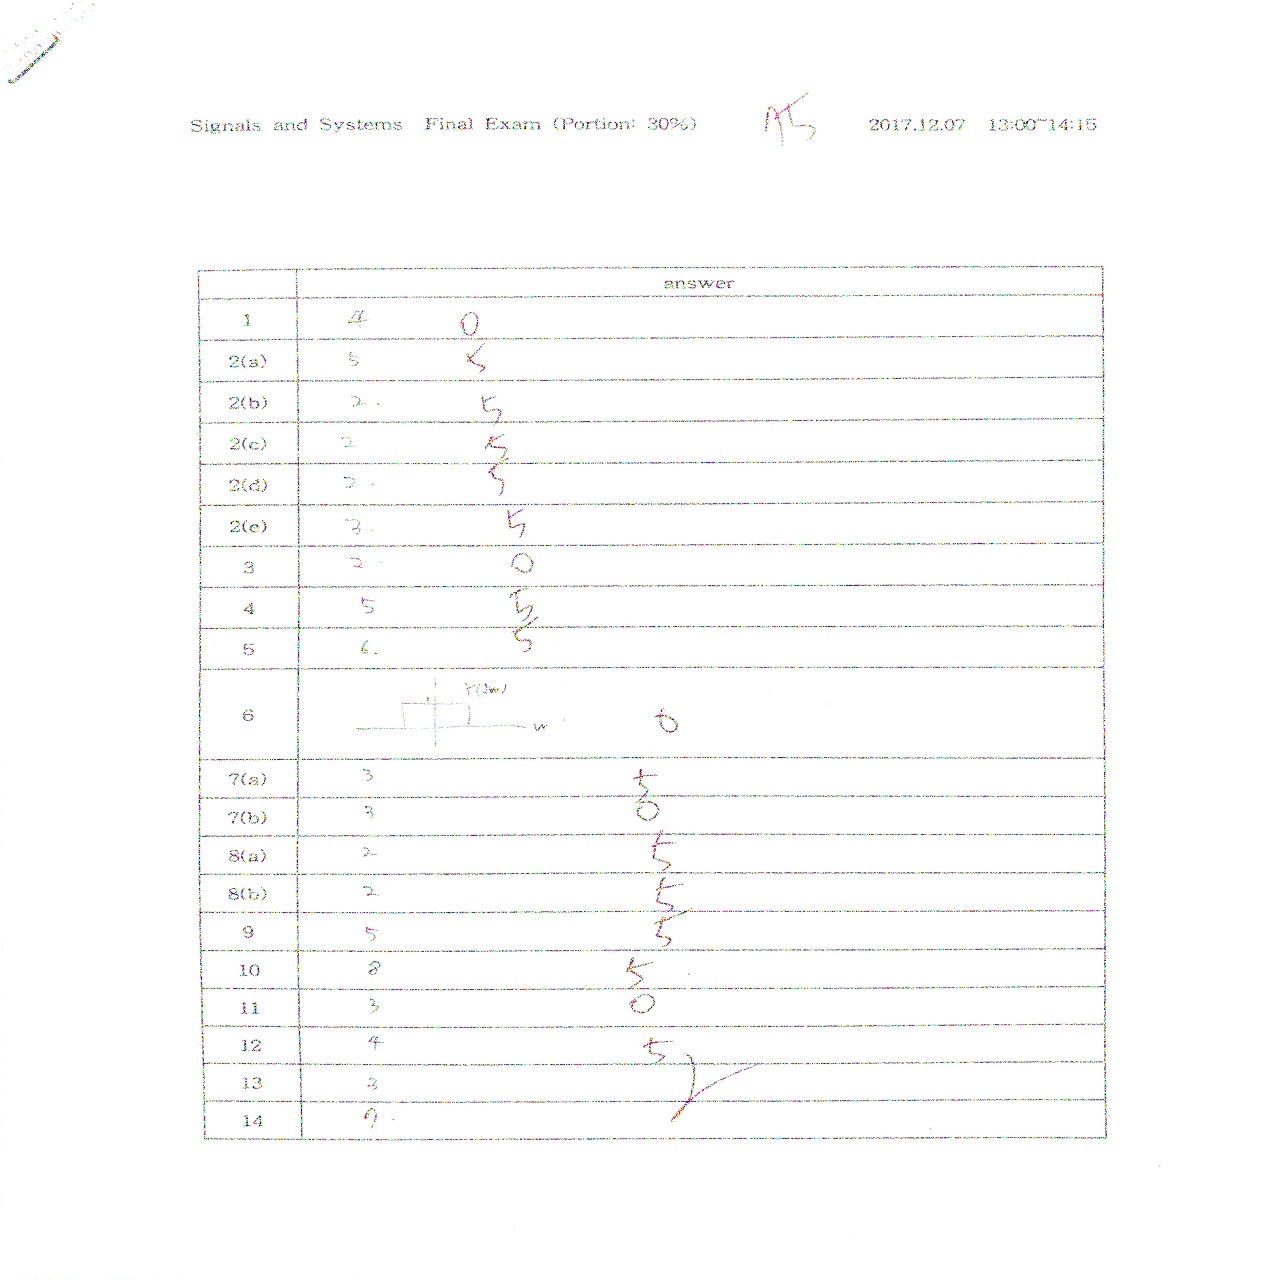 Signals and Systems Final Exam (Portion: 30%) 75 2017.12.07 13:00~14:15
answer
1 4 0
2(a) 5 5
2(b) 2. 5
2(c) 2 5
2(d) 2. 5
2(e) 3. 5
3 2. 0
4 5 5
5 6. 5
6 Y(jw) w 0
7(a) 3 5
7(b) 3 0
8(a) 2 5
8(b) 2 5
9 5 5
10 8 5
11 3 0
12 4 5
13 3
14 9.